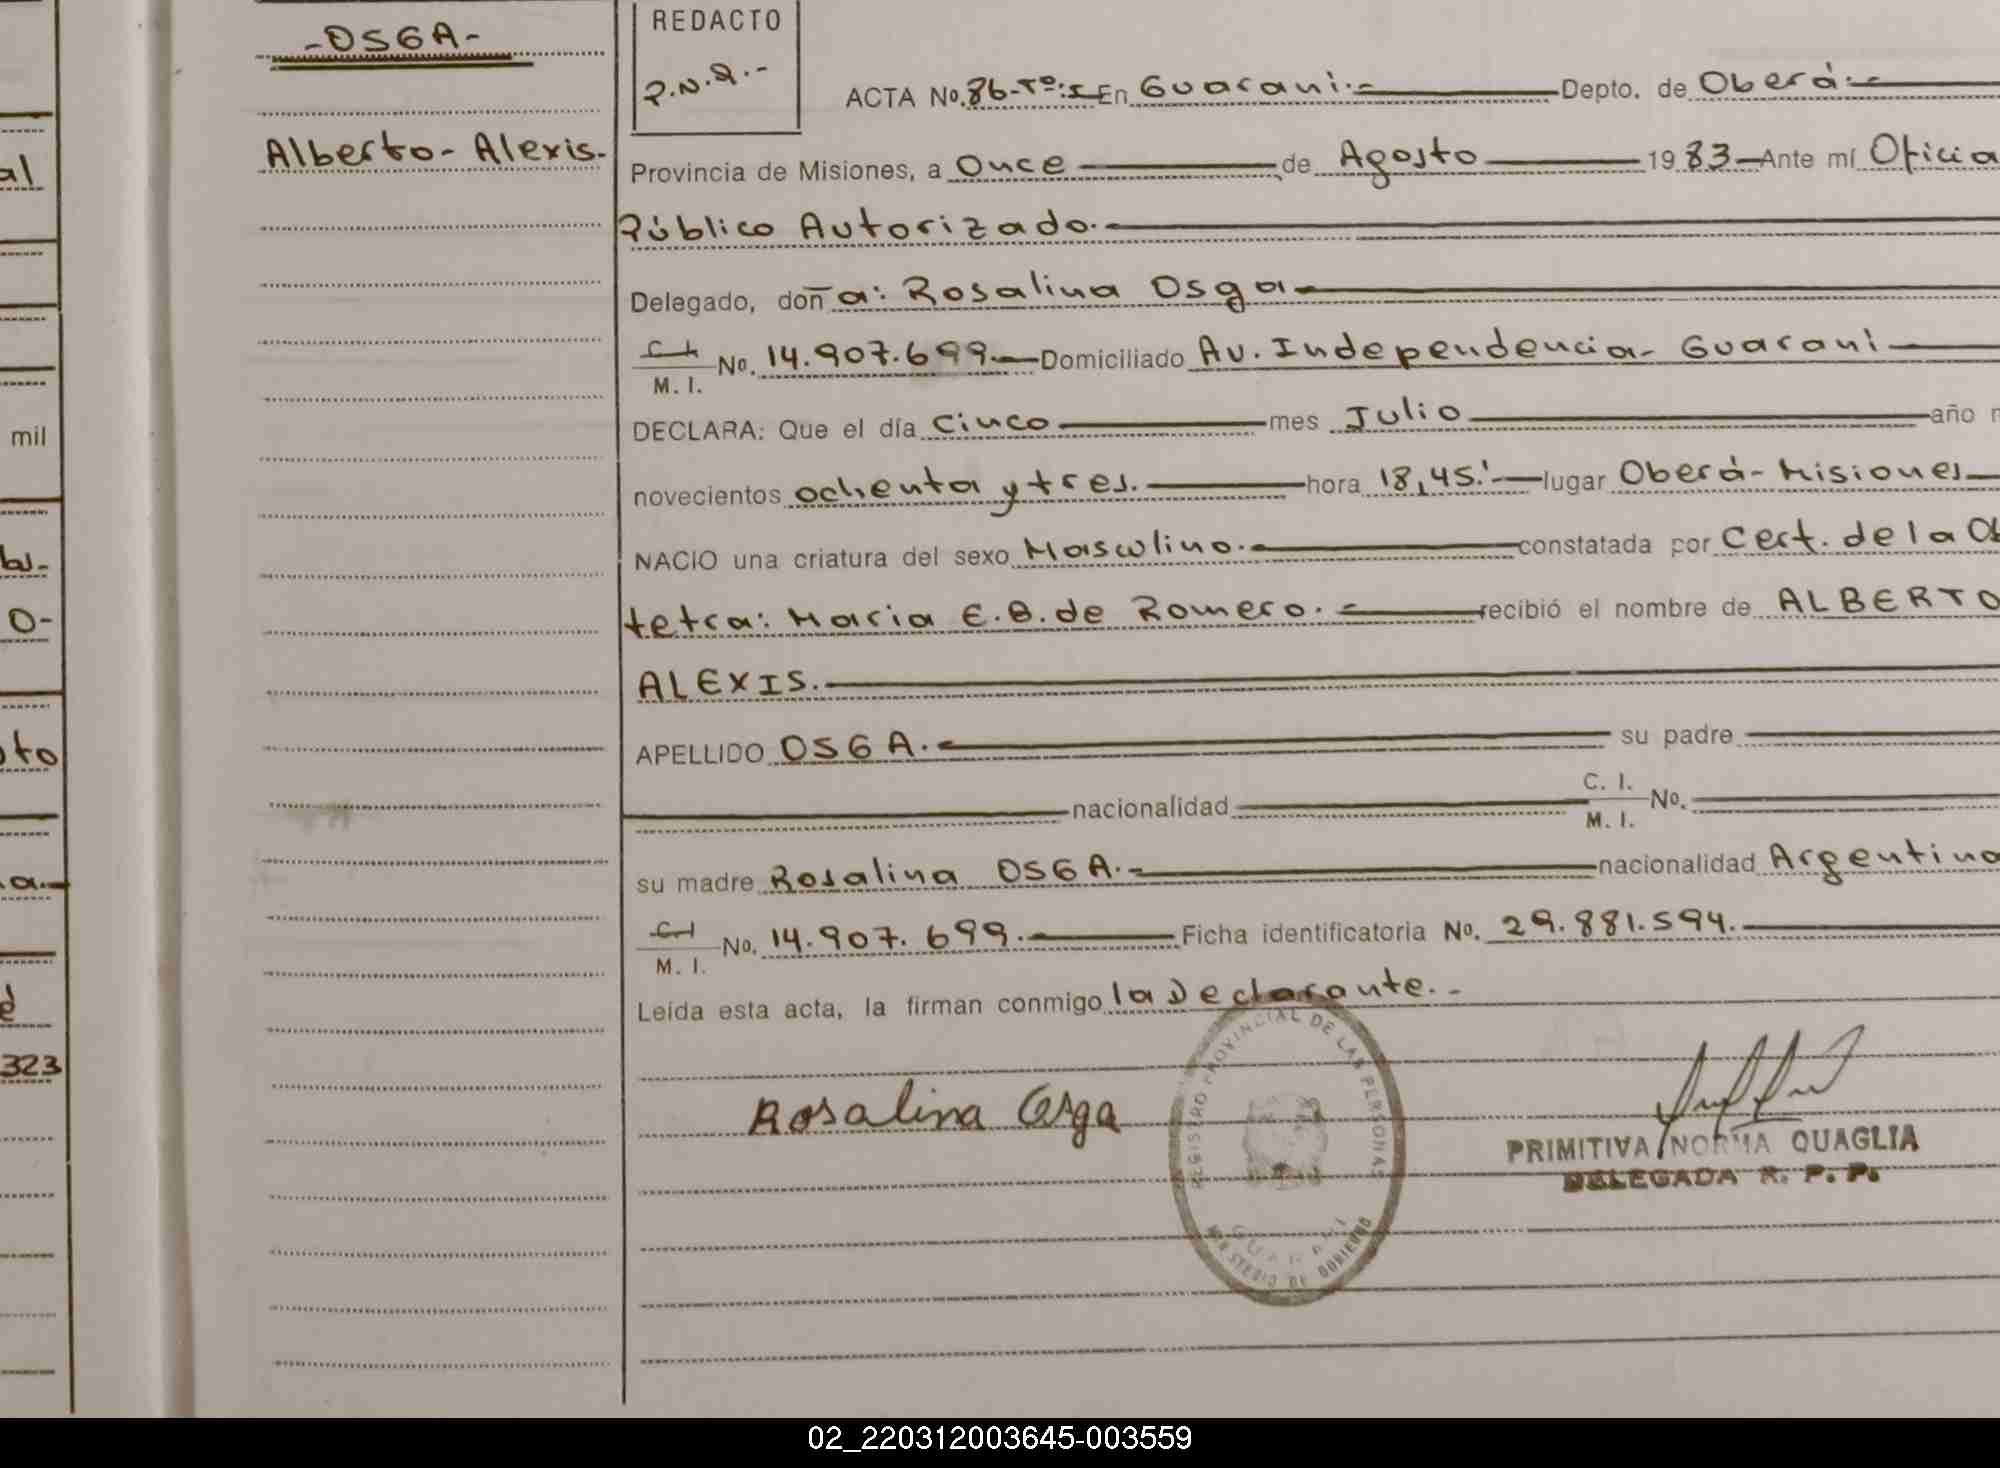 -OSGA-
Alberto-Alexis.
REDACTO
P.N.Q.-
ACTA No. 86-Tº:I En Guaraní.- Depto. de Oberá.-
Provincia de Misiones, a Once de Agosto 1983 Ante mí Oficia
Público Autorizado.
Delegado, doña: Rosalina Osga
C.I.
M. I. No. 14.907.699.- Domiciliado Av. Independencia- Guaraní
DECLARA: Que el día Cinco mes Julio año
novecientos ochenta y tres. hora 18,45.' lugar Oberá-Misiones
NACIO una criatura del sexo Masculino.- constatada por Cert. de la Obs
tetra: Maria E.B. de Romero.- recibió el nombre de ALBERTO
ALEXIS.
APELLIDO OSGA.- su padre
nacionalidad C. I.
M. I. No.
su madre Rosalina OSGA.- nacionalidad Argentina
C.I.
M. I. No. 14.907.699.- Ficha identificatoria No. 29.881.594.
Leída esta acta, la firman conmigo la Declarante.-
Rosalina Osga
REGISTRO PROVINCIAL DE LAS PERSONAS
GUARANI
MINISTERIO DE GOBIERNO
PRIMITIVA NORMA QUAGLIA
DELEGADA R. P. P.
al
mil
O-
to
a.-
d
323
02_220312003645-003559